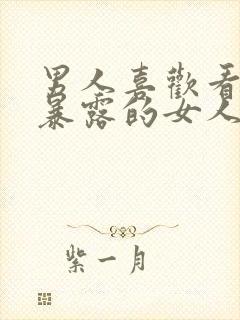 男人喜歡看
暴露的女人
紫一月